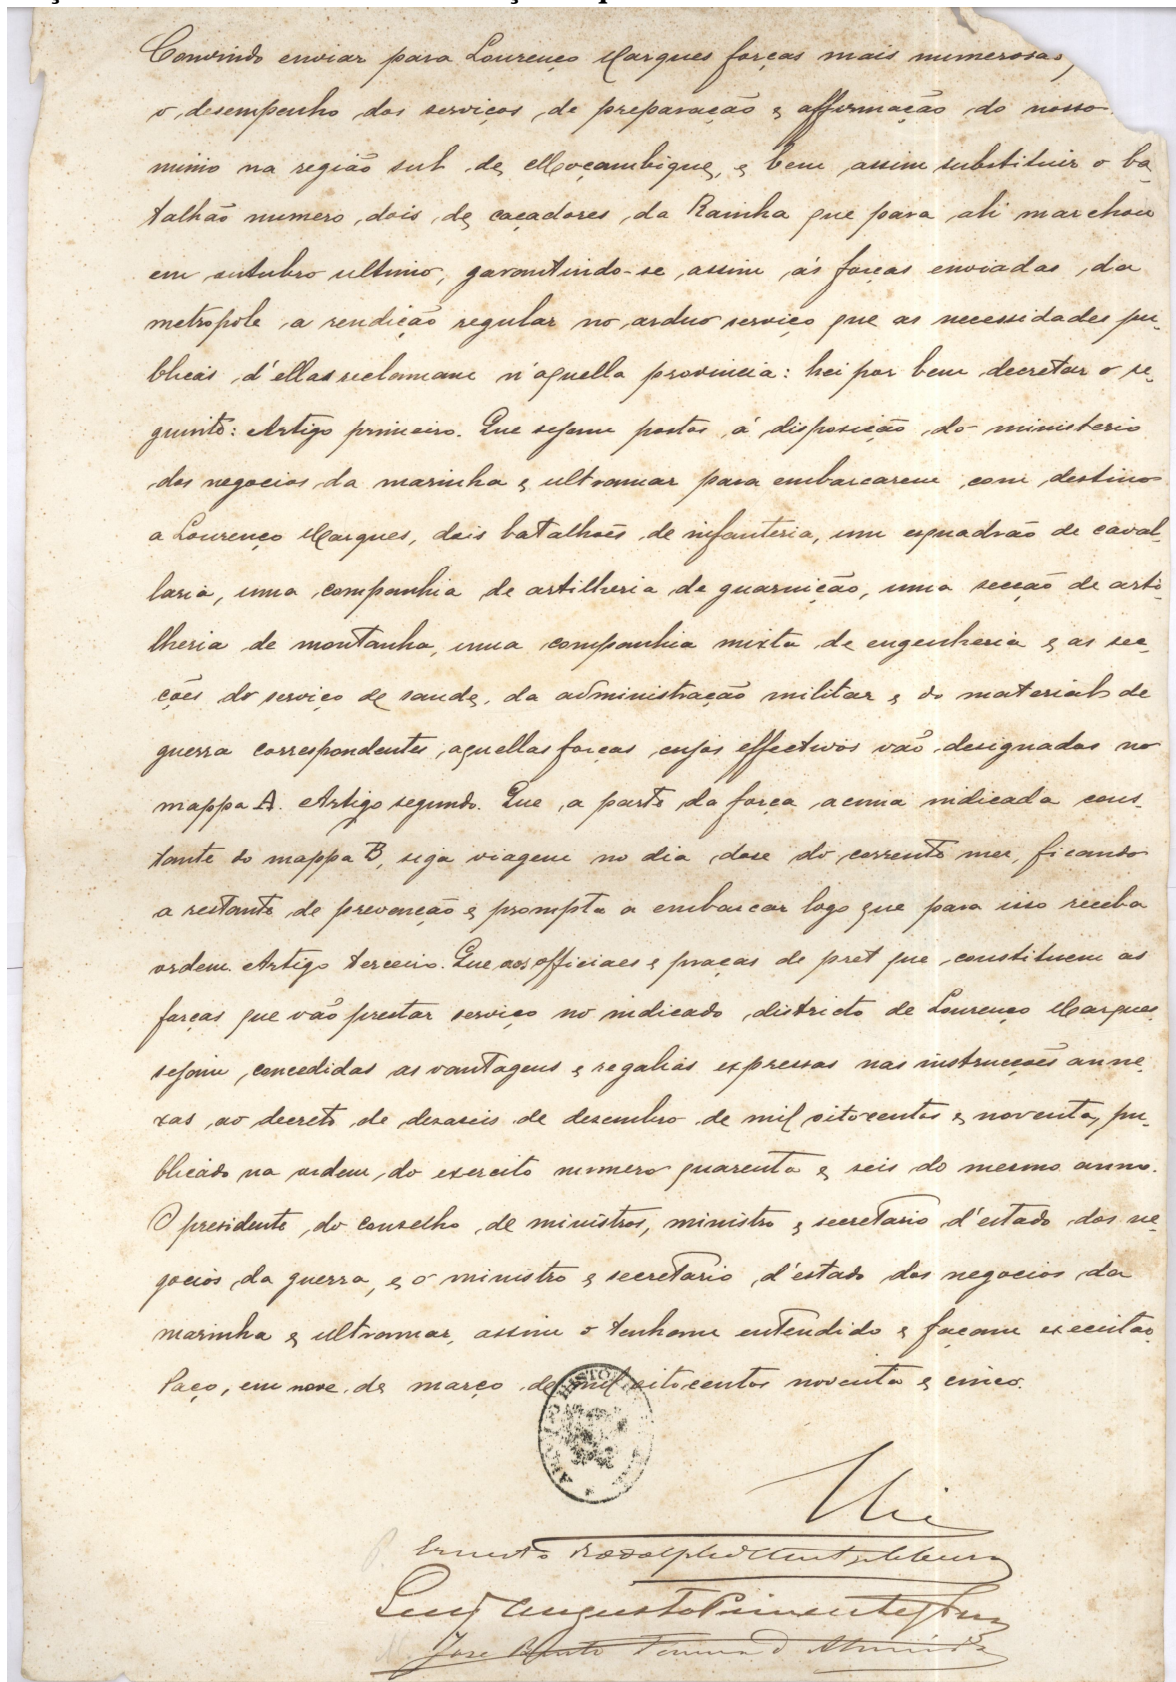 Convindo enviar para Lourenço Marques forças mais numerosas,
o desempenho dos serviços de preparação e affirmação do nosso
minio na região sul de Moçambique, e bem assim substituir o ba-
talhão numero dois de caçadores da Rainha que para ali marchou
em outubro ultimo, garantindo-se assim ás forças enviadas da
metropole a rendição regular no arduo serviço que as necessidades pu-
blicas d'ellas reclamam n'aquella provincia: hei por bem decretar o se-
guinte: Artigo primeiro. Que sejam postos á disposição do ministerio
dos negocios da marinha e ultramar para embarcarem com destino
a Lourenço Marques, dois batalhões de infanteria, um esquadrão de caval-
laria, uma companhia de artilheria de guarnição, uma secção de arti-
lheria de montanha, uma companhia mixta de engenheria e as sec-
ções do serviço de saude, da administração militar e do material de
guerra correspondentes aquellas forças cujos effectivos vão designados no
mappa A. Artigo segundo. Que a parte da força acima indicada cons-
tante do mappa B, siga viagem no dia doze do corrente mez, ficando
a restante de prevenção e prompta a embarcar logo que para isso receba
ordem. Artigo terceiro. Que aos officiaes e praças de pret que constituem as
forças que vão prestar serviço no indicado districto de Lourenço Marques
sejam concedidas as vantagens e regalias expressas nas instrucções anne-
xas ao decreto de dezaseis de dezembro de mil oitocentos e noventa, pu-
blicado na ordem do exercito numero quarenta e seis do mesmo anno.
O presidente do conselho de ministros, ministro e secretario d'estado dos ne-
gocios da guerra, e o ministro e secretario d'estado dos negocios da
marinha e ultramar, assim o tenham entendido e façam executar.
Paço, em nove de março de mil oitocentos noventa e cinco.
Ernesto Rodolpho Hintze Ribeiro
Luiz Augusto Pimentel Pinto
José Bento Ferreira d'Almeida